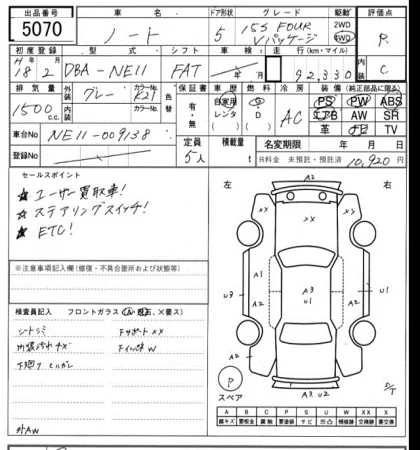 出品番号 車名 ドア形状 グレード 駆動 評価点
5070 ノート 5 15S FOUR Vパッケージ 2WD 4WD R
初度登録 型式 シフト 車検 走行(km・マイル) 内装
H 18年2月 DBA-NE11 FAT 年 月 92,330 C
排気量 外装 カラーNo. 色替 保証書 車歴 燃料 冷房 装備(純正部品に限る)
1500 c.c. グレー K21 有・無 自家用 レンタ G D AC PS PW ABS
エアB AW SR
革 ナビ TV
車台No NE11-009138
登録No 定員 5人 積載量 t 名変期限 年 月 日
R料金 未預託・預託済 10,920円
セールスポイント
★ユーザー買取車!
★ステアリングスイッチ!
★ETC!
※注意事項記入欄(修復・不具合箇所および状態等)
検査員記入 フロントガラス(A・飛石、X要ス)
シートシミ 下サポートXX
内装汚れキズ
下廻り
外AW
左 右
A2
XX XX
A1 A3 U1 A2
U3 A1
A2 A2
P
スペア
A3 U2
A B C P S U W X XX
線キズ 要板金 腐蝕 要塗装 サビ 凹 補修跡 交換跡 要交換